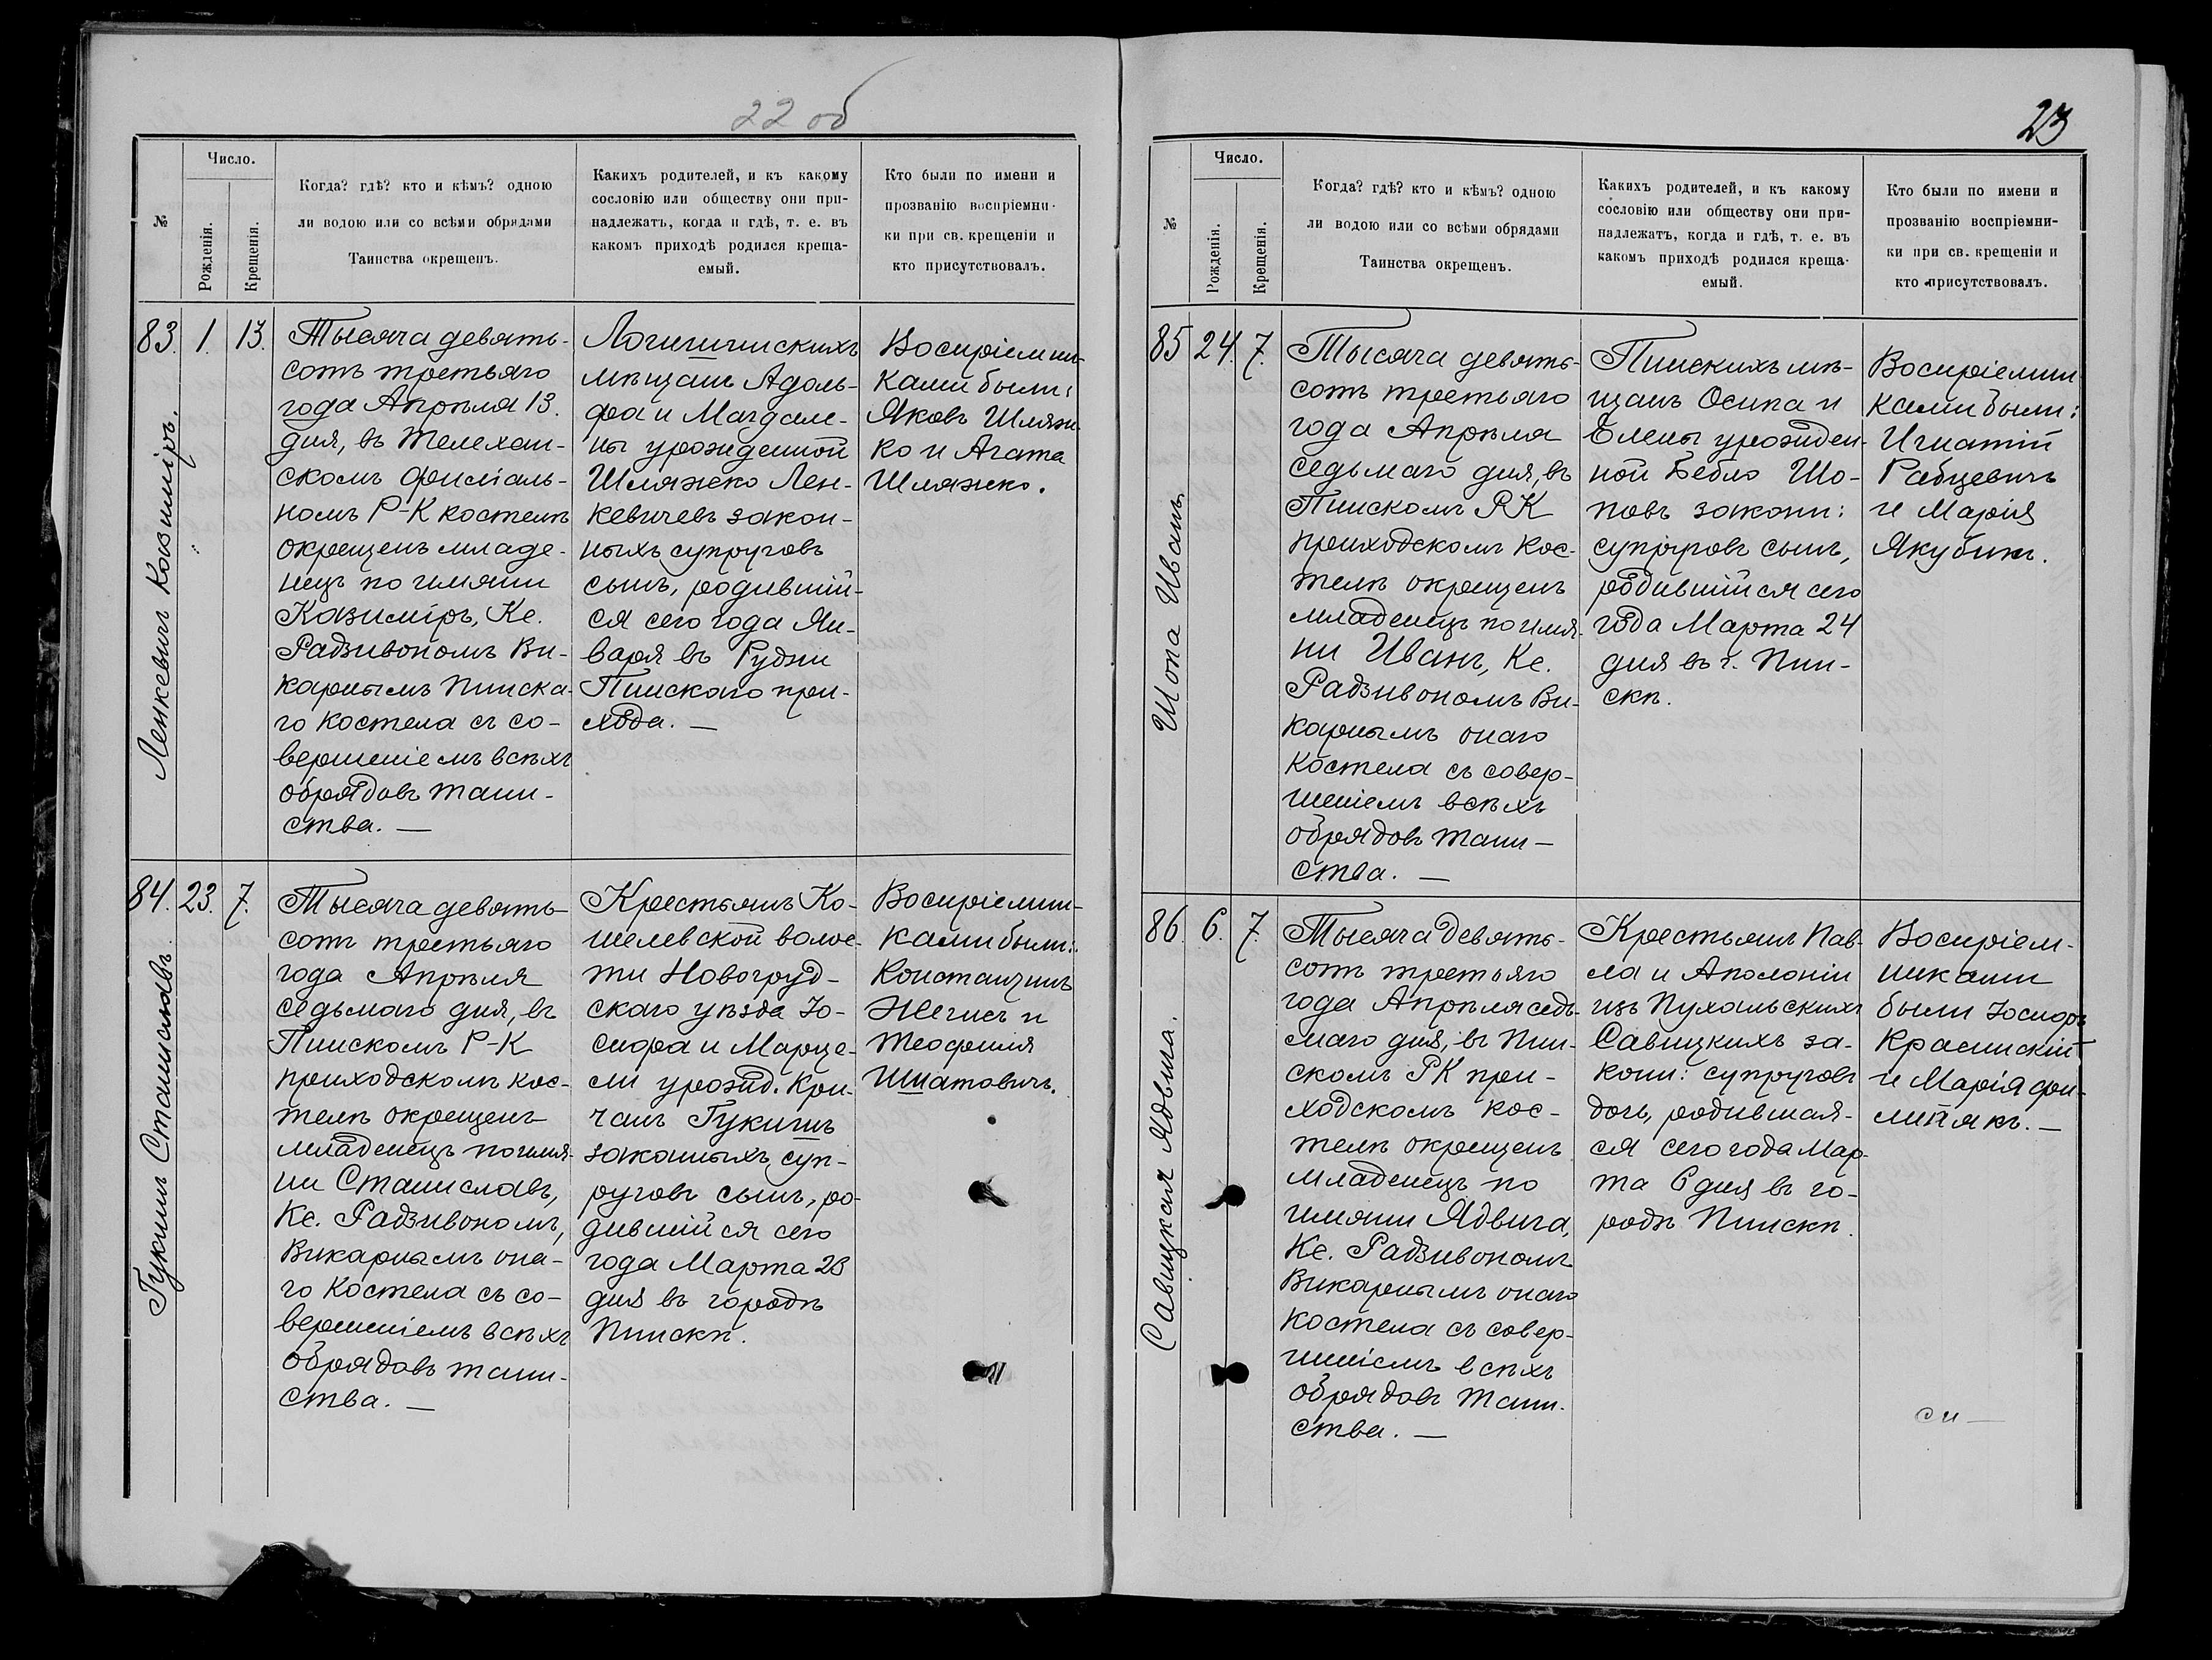 22 об
№
Число.
Рожденія.
Крещенія.
Когда? гдѣ? кто и кѣмъ? одною
ли водою или со всѣми обрядами
Таинства окрещенъ.
Какихъ родителей, и къ какому
сословію или обществу они при-
надлежатъ, когда и гдѣ, т. е. въ
какомъ приходѣ родился креща-
емый.
Кто были по имени и
прозванію воспріемни-
ки при св. крещеніи и
кто присутствовалъ.
83. 1. 13.
Ленкевичъ Казиміръ.
Тысяча девять-
сотъ третьяго
года Апрѣля 13.
дня, въ Телехан-
скомъ филіаль-
номъ Р-К костелѣ
окрещенъ младе-
нецъ по имяни
Казиміръ, Кс.
Радзивономъ Ви-
карнымъ Пинска-
го костела съ со-
вершеніемъ всѣхъ
обрядовъ таин-
ства. —
Логишинскихъ
мѣщанъ Адоль-
фа и Магдале-
ны урожденной
Шляжко Лен-
кевичевъ закон-
ныхъ супруговъ
сынъ, родившій-
ся сего года Ян-
варя въ Рудни
Пинскаго при-
хода. —
Воспріемни-
ками были:
Яковъ Шляж-
ко и Агата
Шляжко.
84. 23. 7.
Гукишъ Станиславъ
Тысяча девять-
сотъ третьяго
года Апрѣля
седьмаго дня, въ
Пинскомъ Р-К
приходскомъ кос-
телѣ окрещенъ
младенецъ по имя-
ни Станиславъ,
Кс. Радзивономъ,
Викарнымъ она-
го костела съ со-
вершеніемъ всѣхъ
обрядовъ таин-
ства. —
Крестьянъ Ко-
шелевской волос-
ти Новогруд-
скаго уѣзда Іо-
сифа и Марце-
ли урожд. Кри-
чанъ Гукишъ
законныхъ суп-
руговъ сынъ, ро-
дившійся сего
года Марта 23
дня въ городѣ
Пинскѣ.
Воспріемни-
ками были:
Константинъ
и
Теофиля
Шпатовичъ.
23
№
Число.
Рожденія.
Крещенія.
Когда? гдѣ? кто и кѣмъ? одною
ли водою или со всѣми обрядами
Таинства окрещенъ.
Какихъ родителей, и къ какому
сословію или обществу они при-
надлежатъ, когда и гдѣ, т. е. въ
какомъ приходѣ родился креща-
емый.
Кто были по имени и
прозванію воспріемни-
ки при св. крещеніи и
кто присутствовалъ.
85 24. 7.
Шопа Иванъ.
Тысяча девять-
сотъ третьяго
года Апрѣля
седьмаго дня, въ
Пинскомъ РК
приходскомъ кос-
телѣ окрещенъ
младенецъ по имя-
ни Иванъ, Кс.
Радзивономъ Ви-
карнымъ онаго
костела съ совер-
шеніемъ всѣхъ
обрядовъ таин-
ства. —
Пинскихъ мѣ-
щанъ Осипа и
Елены урожден-
ной Бебло Шо-
повъ законн:
супруговъ сынъ,
родившійся сего
года Марта 24
дня въ г. Пин-
скѣ.
Воспріемни-
ками были:
Игнатій
Рабцевичъ
и Марія
Якубикъ.
86. 6. 7.
Савицкая Ядвига.
Тысяча девять-
сотъ третьяго
года Апрѣля седь-
маго дня, въ Пин-
скомъ РК при-
ходскомъ кос-
телѣ окрещенъ
младенецъ по
имяни Ядвига,
Кс. Радзивономъ
Викарнымъ онаго
костела съ совер-
шеніемъ всѣхъ
обрядовъ таин-
ства. —
Крестьянъ Пав-
ла и Аполоніи
изъ Пухальскихъ
Савицкихъ за-
конн: супруговъ
дочь, родившая-
ся сего года Мар-
та 6 дня въ го-
родѣ Пинскѣ.
Воспріем-
никами
были Іосифъ
Красинскій
и Марія фи-
липякъ. —